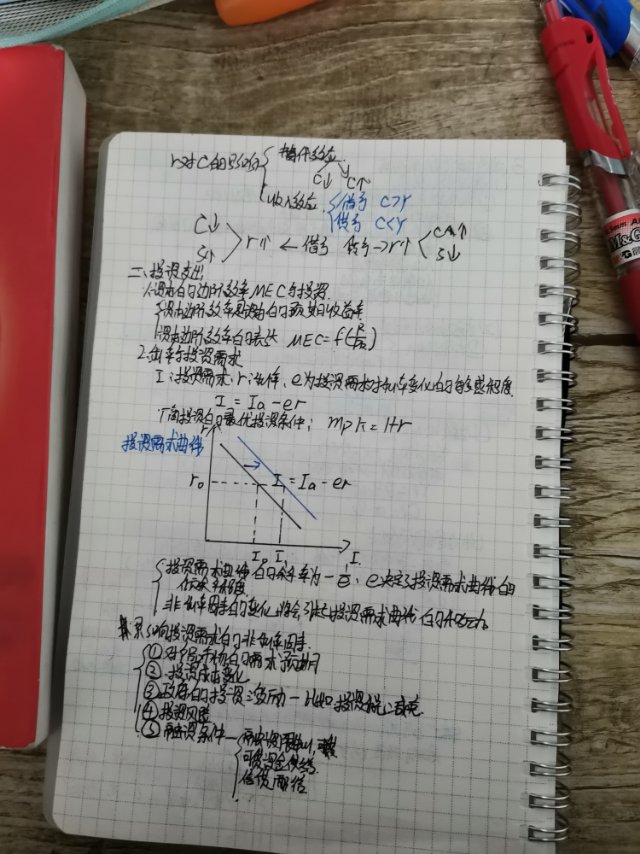 r对C的影响 { 替代效应
C↓ C↑
收入效应 { 借方 C>Y
贷方 C<Y
C↓ S↑ > r↑ ← 借方 贷方 → r↑ < C↑ S↓
二、投资支出
1.资本的边际效率MEC与投资
资本边际效率是资本的预期收益率
资本边际效率的表达 MEC=f(R/Pk)
2.利率与投资需求
I:投资需求、r:利率、e为投资需求对利率变化的敏感程度
I = Ia - er
厂商投资的最优投资条件: mpk = 1+r
投资需求曲线
r
r₀
I = Ia - er
I₀ I₁ I
投资需求曲线的斜率为 -1/e, e决定了投资需求曲线的
倾斜程度
非利率因素的变化,将会引起投资需求曲线的移动
影响投资需求的非利率因素
①对产品市场的需求预期
②投资成本变化
③政府的投资激励—比如投资税收减免
④投资风险
⑤融资条件—融资
可贷资金供给
信贷配给
M&G